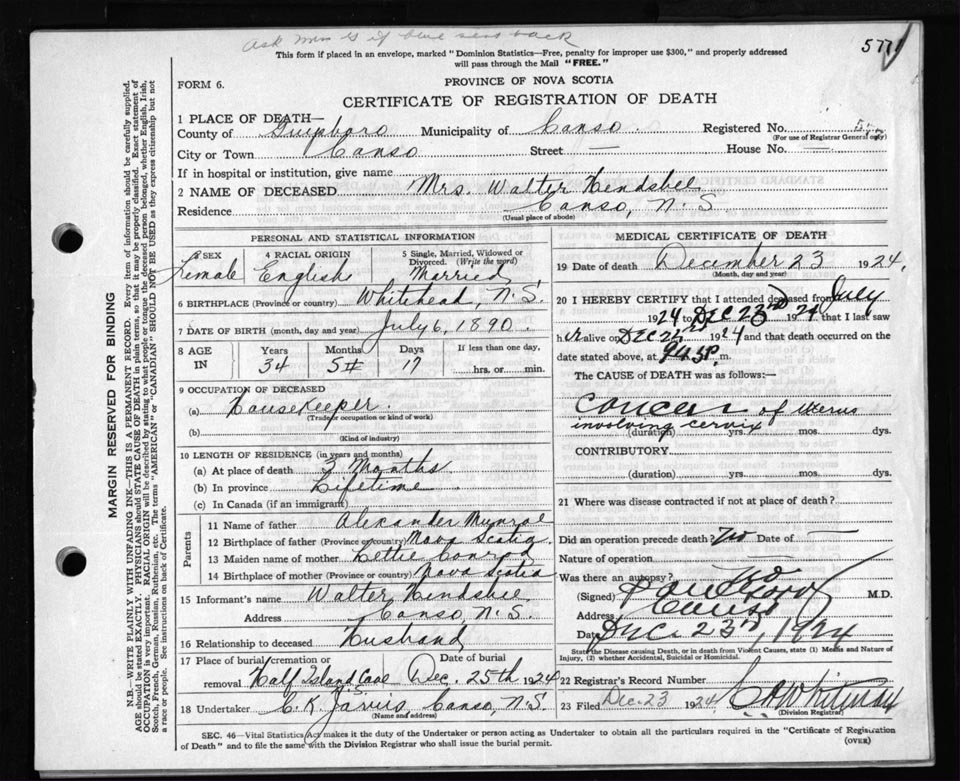 ask Mrs G if blue sens back
577
This form if placed in an envelope, marked "Dominion Statistics—Free, penalty for improper use $300," and properly addressed
will pass through the Mail "FREE."
FORM 6.
PROVINCE OF NOVA SCOTIA
CERTIFICATE OF REGISTRATION OF DEATH
1 PLACE OF DEATH—
County of Guysboro Municipality of Canso. Registered No.
(For use of Registrar General only)
City or Town Canso Street — House No. —
If in hospital or institution, give name
2 NAME OF DECEASED Mrs. Walter Hendsbee
Residence Canso, N.S.
(Usual place of abode)
PERSONAL AND STATISTICAL INFORMATION
3 SEX Female
4 RACIAL ORIGIN English
5 Single, Married, Widowed or Divorced. (Write the word) Married
6 BIRTHPLACE (Province or country) Whitehead, N.S.
7 DATE OF BIRTH (month, day and year) July 6, 1890.
8 AGE IN Years 34 Months 5 Days 17 If less than one day, hrs. or min.
9 OCCUPATION OF DECEASED
(a) Housekeeper.
(Trade or occupation or kind of work)
(b)
(Kind of industry)
10 LENGTH OF RESIDENCE (in years and months)
(a) At place of death 3 Months
(b) In province Lifetime
(c) In Canada (if an immigrant)
Parents
11 Name of father Alexander Munroe
12 Birthplace of father (Province or country) Nova Scotia
13 Maiden name of mother Lettie Conrad
14 Birthplace of mother (Province or country) Nova Scotia
15 Informant's name Walter Hendsbee
Address Canso, N.S.
16 Relationship to deceased Husband
17 Place of burial, cremation or removal Half Island Cove N.S. Date of burial Dec. 25th 1924
18 Undertaker C. K. Jarvis, Canso, N.S.
(Name and address)
MEDICAL CERTIFICATE OF DEATH
19 Date of death December 23 1924.
(Month, day and year)
20 I HEREBY CERTIFY that I attended deceased from July
1924 to Dec 23rd 1924 that I last saw
her alive on Dec 1924 and that death occurred on
date stated above, at m.
The CAUSE of DEATH was as follows:—
Cancer of uterus
involving cervix
(duration) yrs. mos. dys.
CONTRIBUTORY
(duration) yrs. mos. dys.
21 Where was disease contracted if not at place of death?
Did an operation precede death? No Date of —
Nature of operation —
Was there an autopsy? No
(Signed) M.D.
Address Canso
Date Dec. 23rd, 1924
State the Disease causing Death, or in death from Violent Causes, state (1) Means and Nature of
Injury, (2) whether Accidental, Suicidal or Homicidal.
22 Registrar's Record Number
23 Filed Dec. 23 1924 Whitman
(Division Registrar)
SEC. 46—Vital Statistics Act makes it the duty of the Undertaker or person acting as Undertaker to obtain all the particulars required in the "Certificate of Registration
of Death" and to file the same with the Division Registrar who shall issue the burial permit.
(OVER)
MARGIN RESERVED FOR BINDING
N.B.—WRITE PLAINLY WITH UNFADING INK—THIS IS A PERMANENT RECORD. Every item of information should be carefully supplied.
AGE should be stated EXACTLY. PHYSICIANS should STATE CAUSE OF DEATH in plain terms, so that it may be properly classified. Exact statement of
OCCUPATION is very important. RACIAL ORIGIN will be described by stating to what people or tongue the deceased person belonged, whether English, Irish,
Scotch, French, German, Russian, Ruthenian, etc. The terms "AMERICAN" or "CANADIAN" SHOULD NOT BE USED as they express citizenship but not
a race or people. See instructions on back of Certificate.